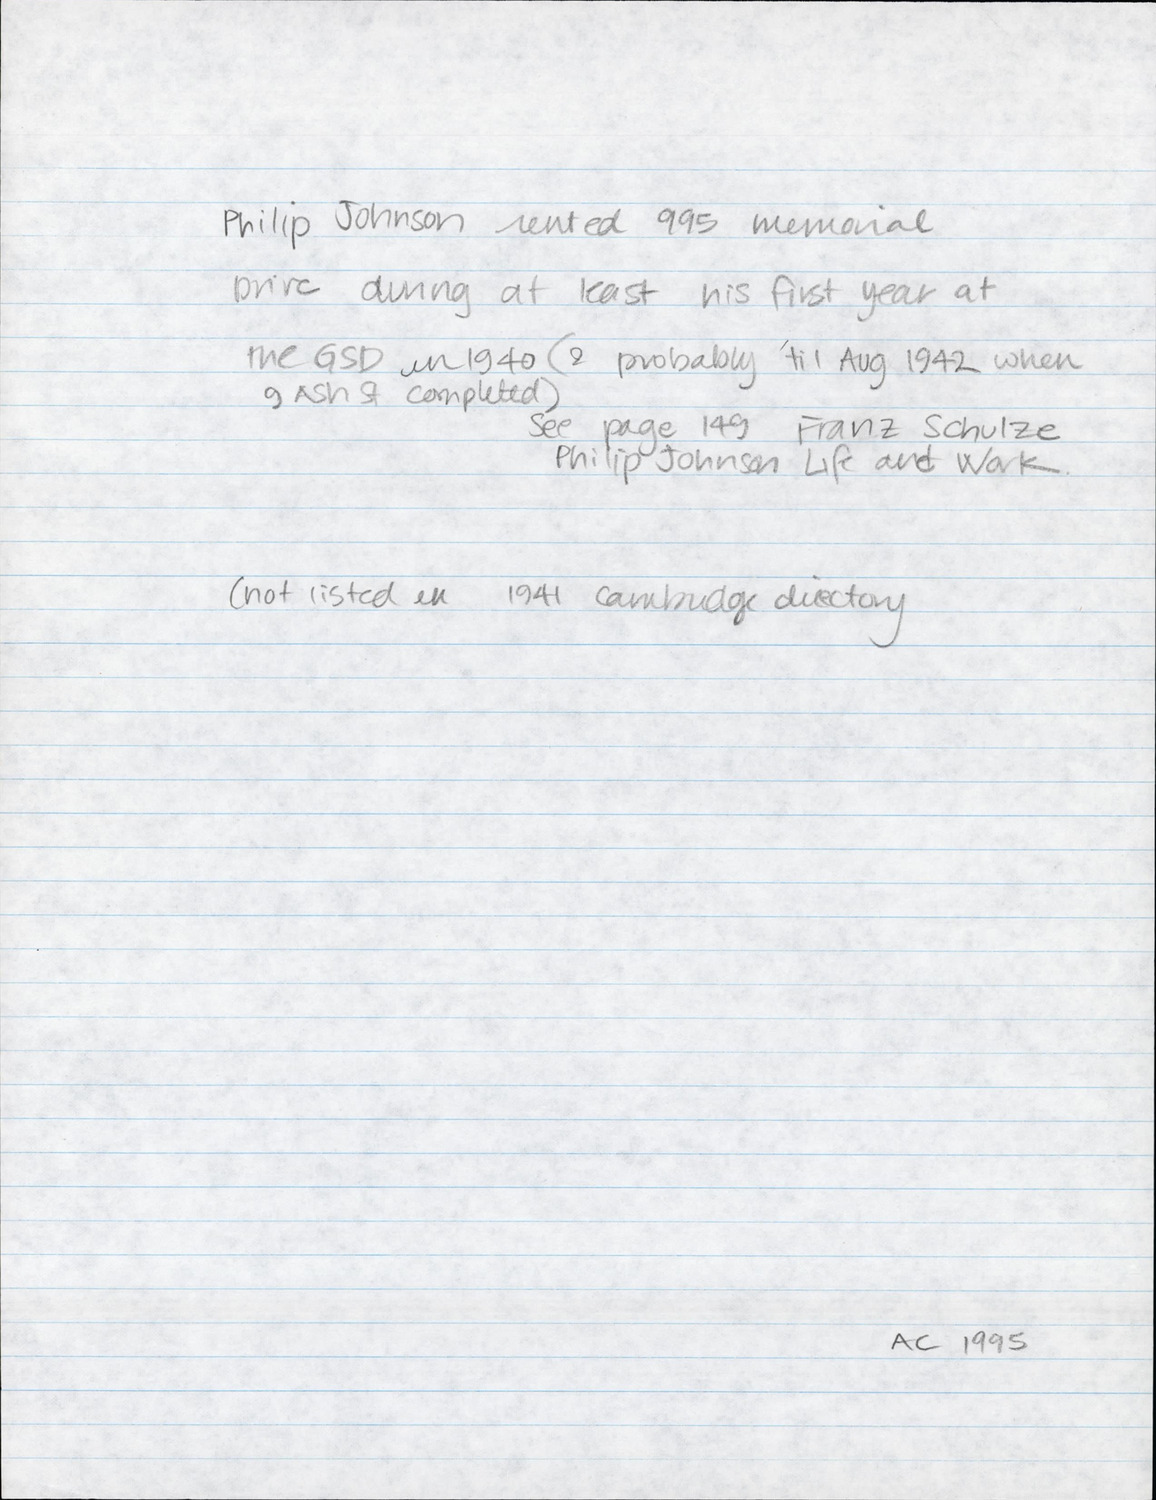 Philip Johnson rented 995 Memorial
Drive during at least his first year at
the GSD in 1940 (& probably 'til Aug 1942 when
9 Ash St completed)
See page 149 Franz Schulze
Philip Johnson Life and Work.
(not listed in 1941 Cambridge directory
AC 1995